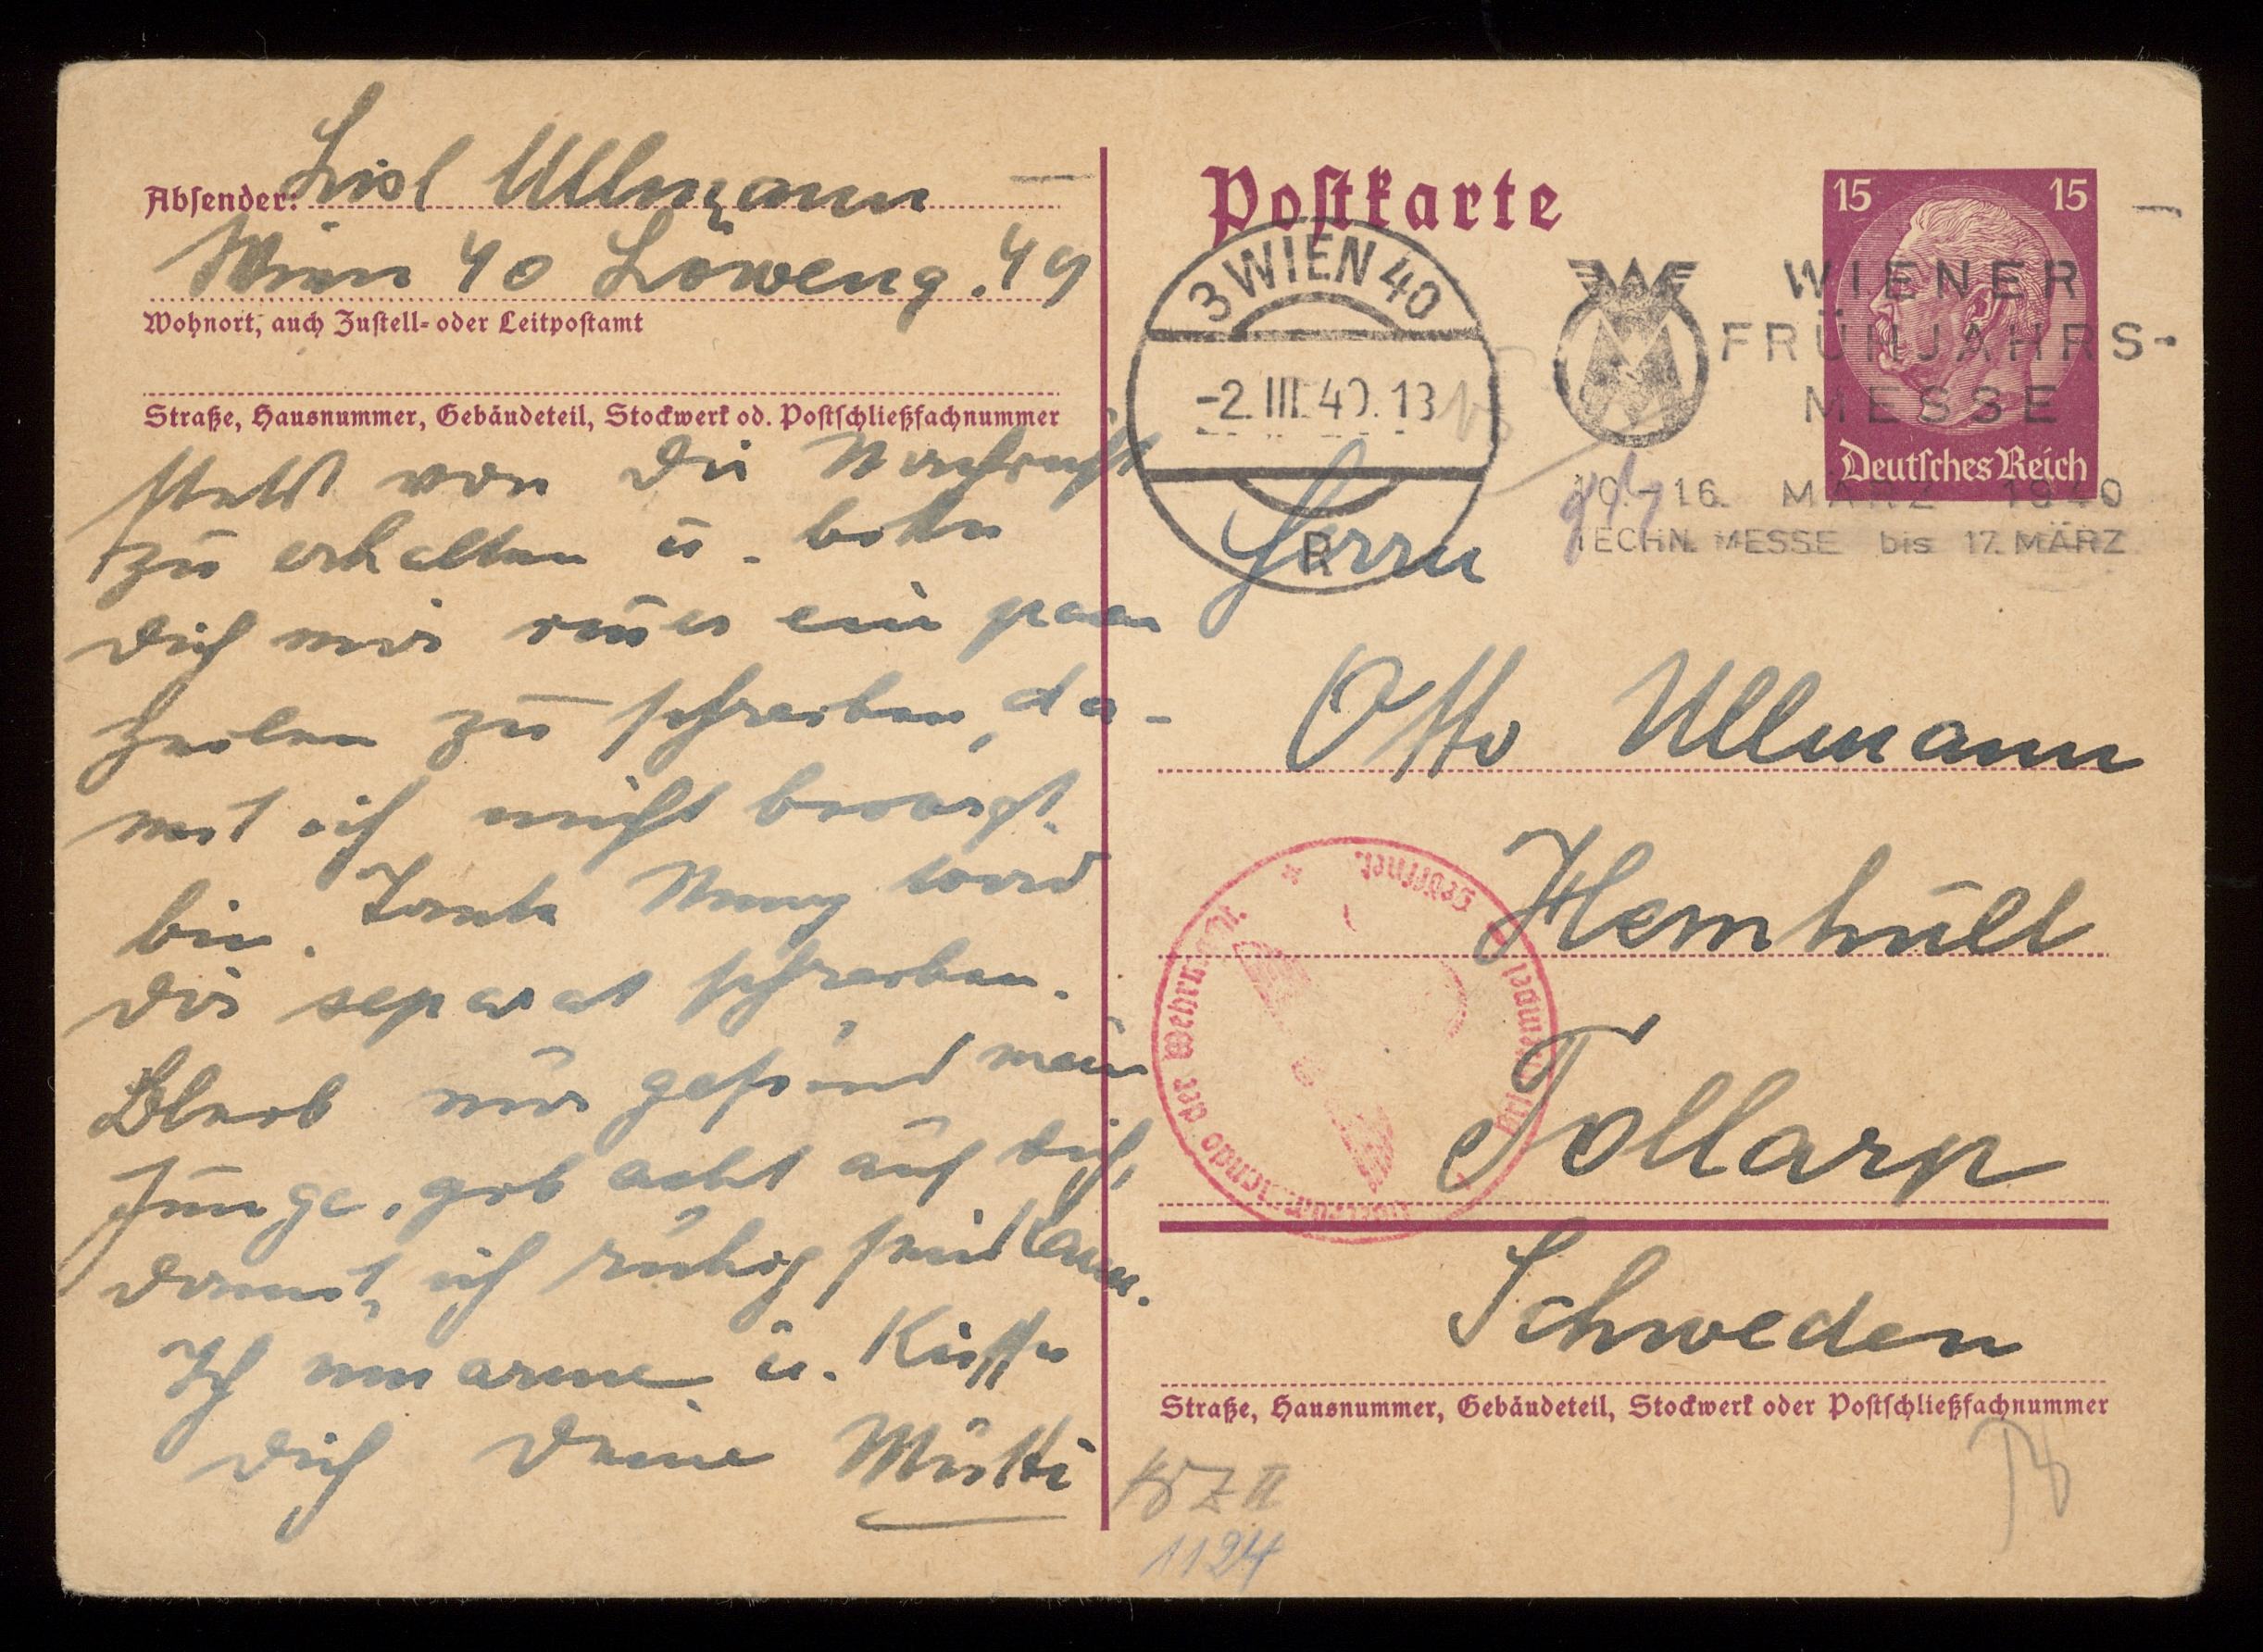 Absender: Lisl Ullmann
Wien 40 Löweng. 49
Wohnort, auch Zustell- oder Leitpostamt
Straße, Hausnummer, Gebäudeteil, Stockwerk od. Postschließfachnummer
von Dir Nachricht
zu erhalten u. bitte
Dich mir ein paar
Zeilen zu schreiben, da-
mit ich nicht besorgt
bin. Tante wird
Dir separat schreiben.
Bleib nur gesund mein
Junge, gib acht auf Dich,
damit ich ruhig sein kann.
Ich umarme u. Küsse
Dich Deine Mutti
Postkarte
3 WIEN 40
-2.III.40.13
R
WIENER
FRÜHJAHRS-
MESSE
10.-16. MÄRZ 1940
TECHN. MESSE bis 17. MÄRZ
15 15
Deutsches Reich
Herrn
Otto Ullmann
Hemhüll
Tollarp
Schweden
Straße, Hausnummer, Gebäudeteil, Stockwerk oder Postschließfachnummer
Geöffnet
der Wehrmacht
1124